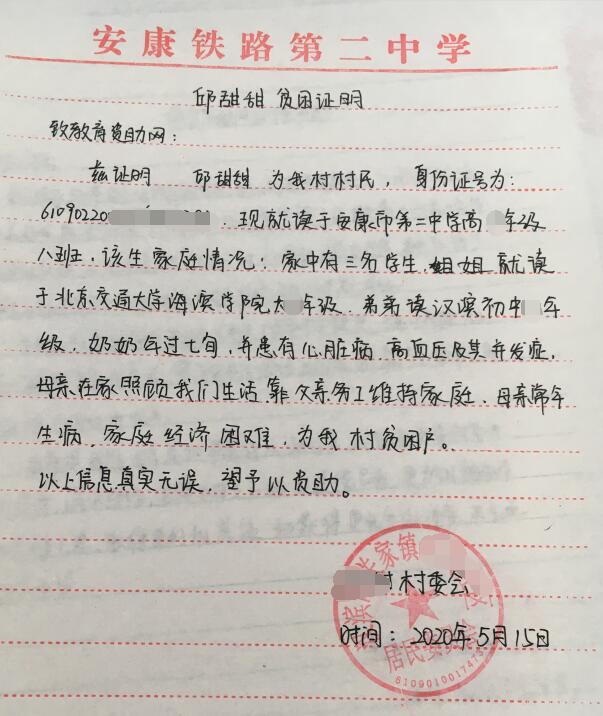 安康铁路第二中学
邱甜甜 贫困证明
致教育资助网：
兹证明 邱甜甜 为我村村民，身份证号为：
61090220 现就读于安康市第二中学高 年级
八班，该生家庭情况：家中有三名学生，姐姐就读
于北京交通大学海滨学院大 年级，弟弟读汉滨初中 年
级，奶奶年过七旬，并患有心脏病，高血压及其并发症，
母亲在家照顾我们生活，靠父亲务工维持家庭，母亲常年
生病，家庭经济困难，为我村贫困户。
以上信息真实无误，望予以资助。
村村委会
时间：2020年5月15日
家镇
居民
6109010017473